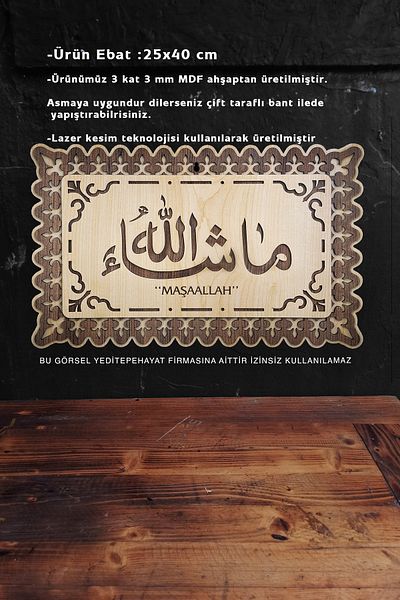 -Ürün Ebat :25x40 cm
-Ürünümüz 3 kat 3 mm MDF ahşaptan üretilmiştir.
Asmaya uygundur dilerseniz çift taraflı bant ilede
yapıştırabilirisiniz.
-Lazer kesim teknolojisi kullanılarak üretilmiştir
ما شاء الله
''MAŞAALLAH''
BU GÖRSEL YEDİTEPEHAYAT FİRMASINA AİTTİR İZİNSİZ KULLANILAMAZ